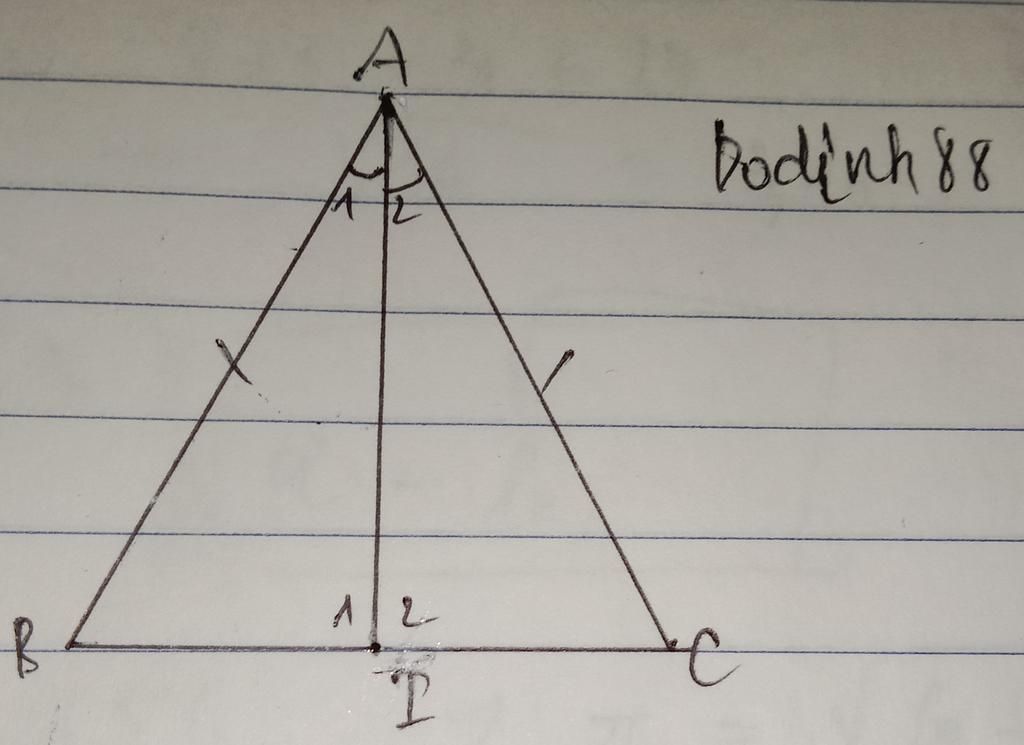 A
Dodinh 88
1 2
1 2
B
C
I